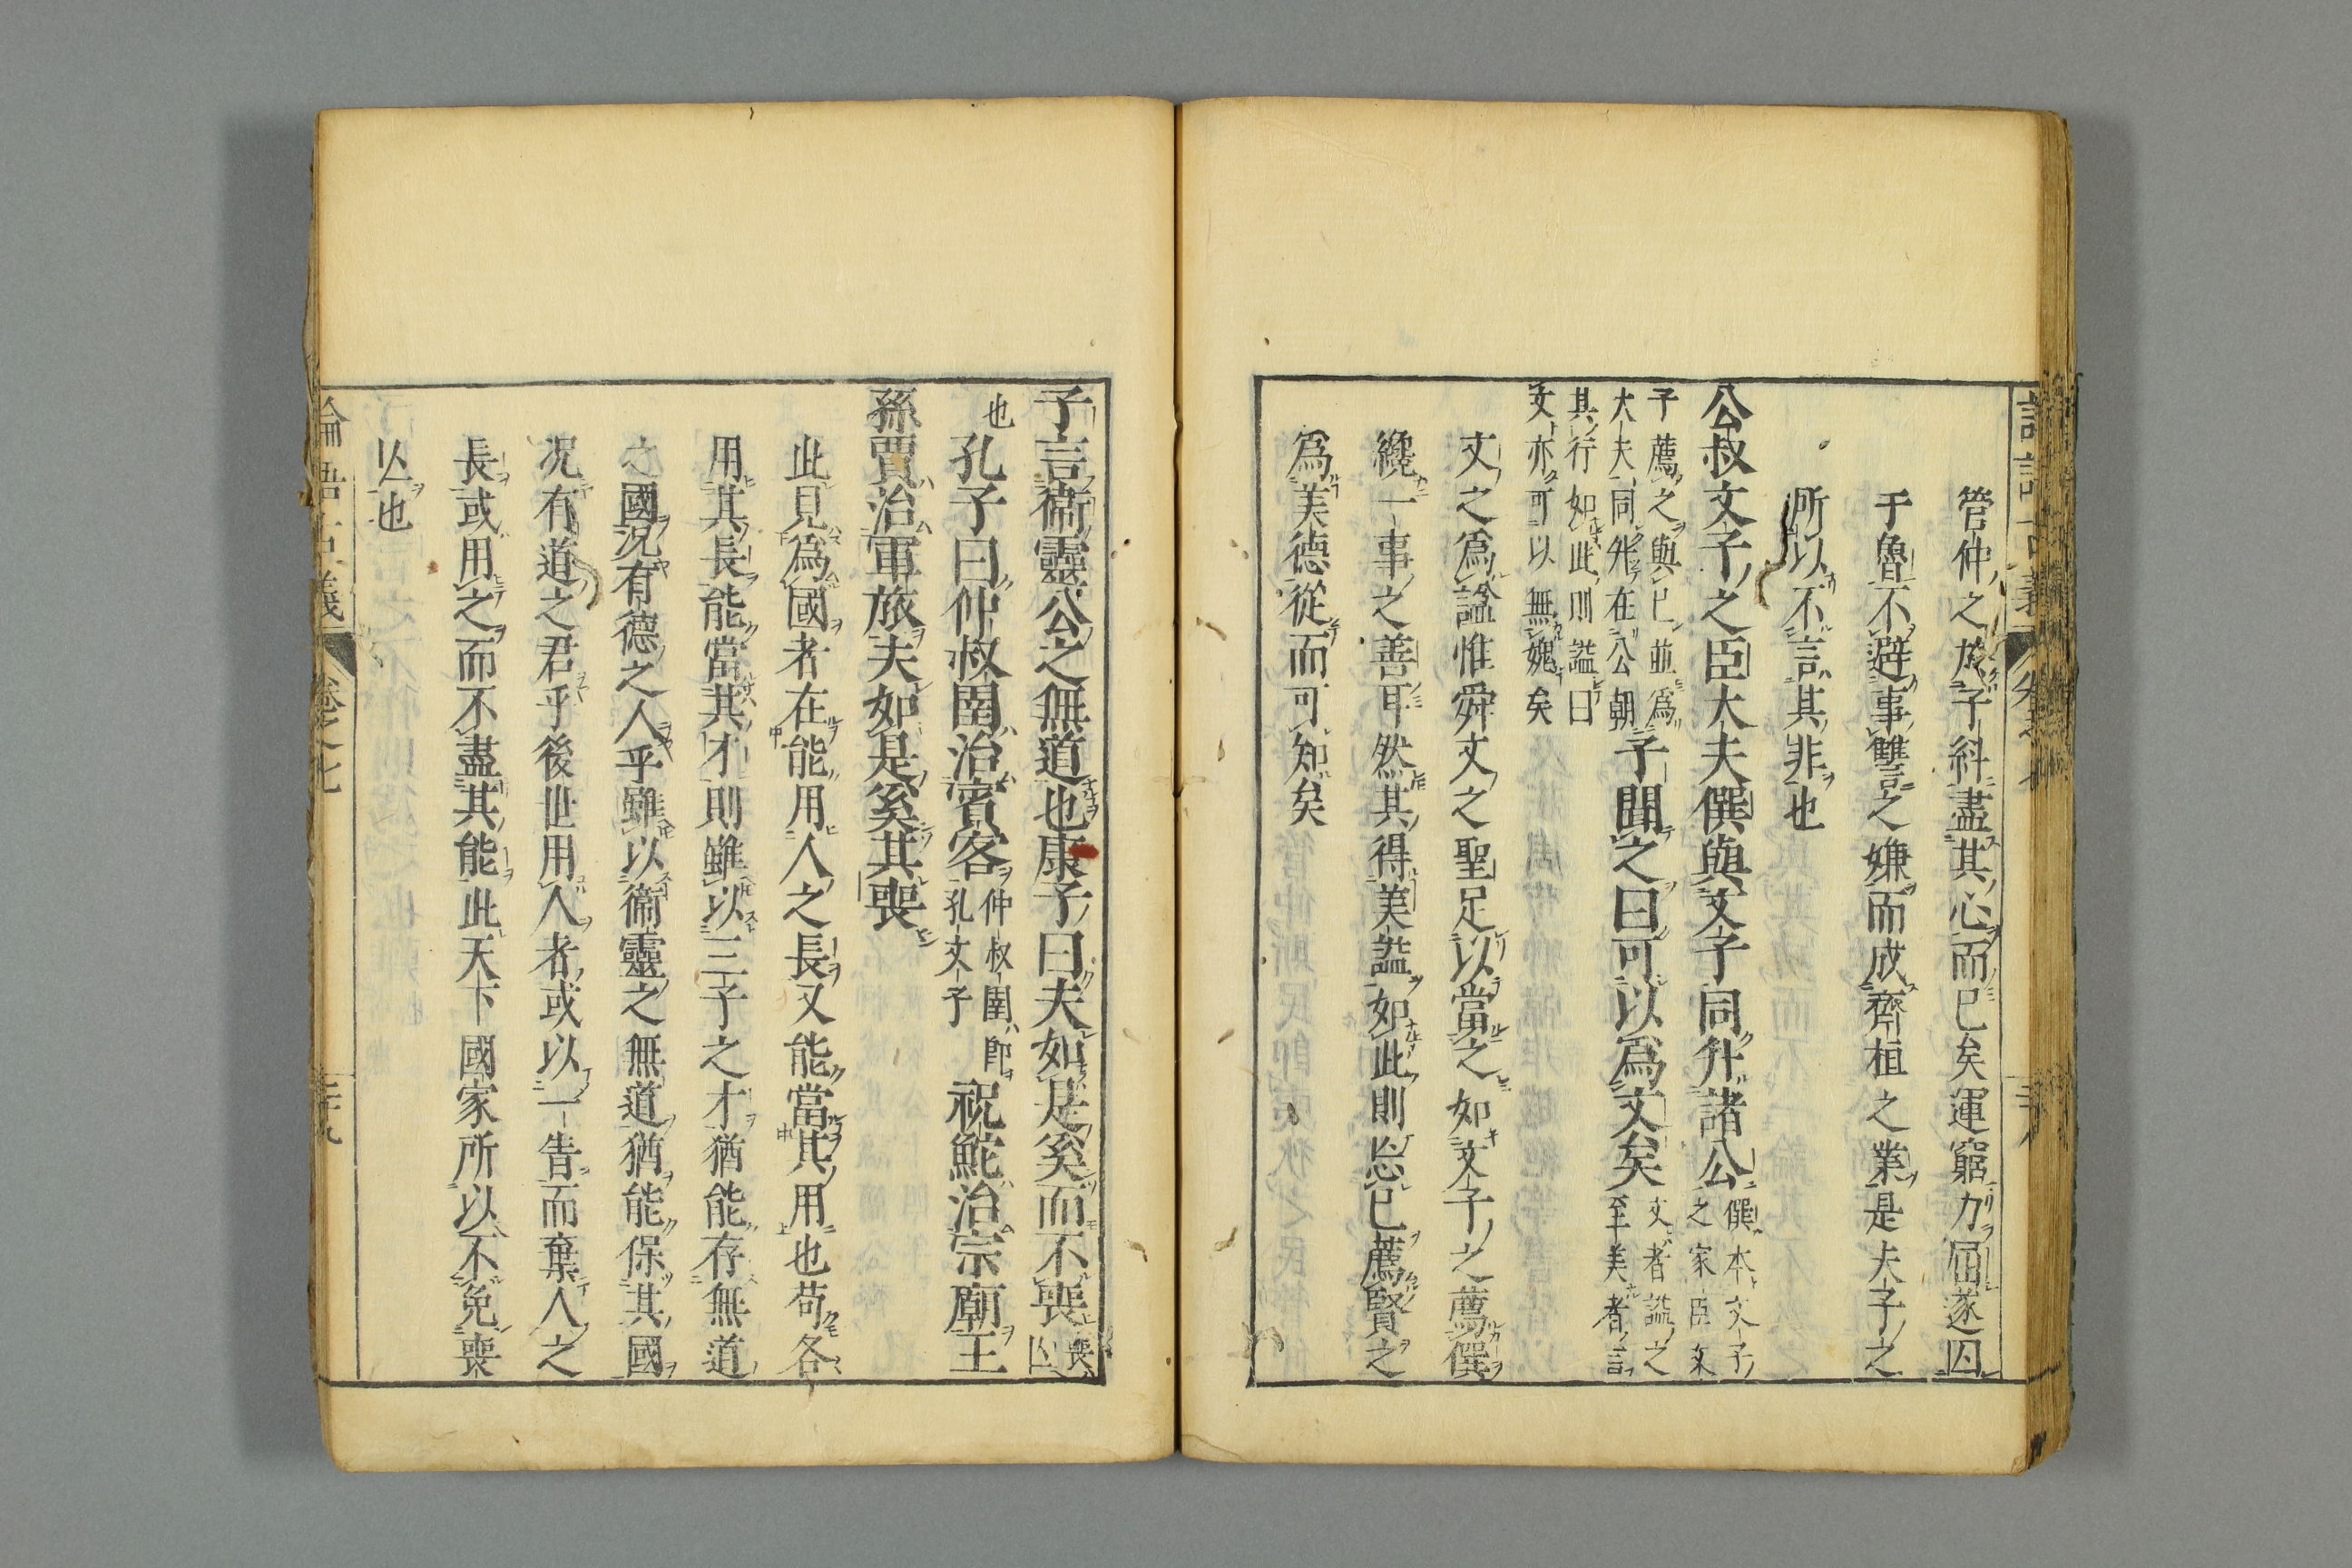 管仲之於子糾盡其心而已矣運窮力屈遂囚
于魯不避事讐之嫌而成齊桓之業是夫子之
所以不言其非也
公叔文子之臣大夫僎與文子同升諸公僎本文子
之家臣文
子薦之與已並爲
大夫同升在公朝子聞之曰可以爲文矣文者謚之
至美者言
其行如此則謚曰
文亦可以無愧矣
文之爲謚惟舜文之聖足以當之如文子之薦僎
纔一事之善耳然其得美謚如此則忘已薦賢之
爲美德從而可知矣
子言衞靈公之無道也康子曰夫如是奚而不喪喪
亾
也
孔子曰仲叔圉治賓客仲叔圉即
孔文子
祝鮀治宗廟王
孫賈治軍旅夫如是奚其喪
此見爲國者在能用人之長又能當其用也苟各
用其長能當其才則雖以三子之才猶能存無道
之國况有德之人乎雖以衞靈之無道猶能保其國
况有道之君乎後世用人者或以一眚而棄人之
長或用之而不盡其能此天下國家所以不免喪
亾也
論語古義
卷之七
三十九